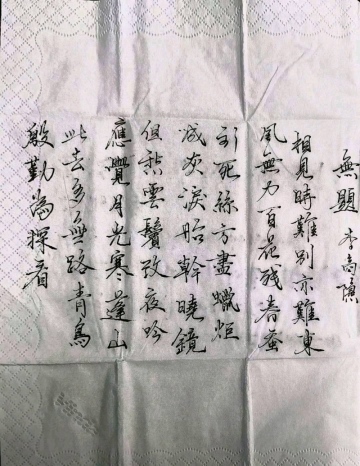 無題 李商隐
相見時難別亦難東
風無力百花残春蚕
到死絲方盡蠟炬
成灰淚始幹曉鏡
但愁雲鬢改夜吟
應覺月光寒蓬山
此去多無路青鳥
殷勤為探看